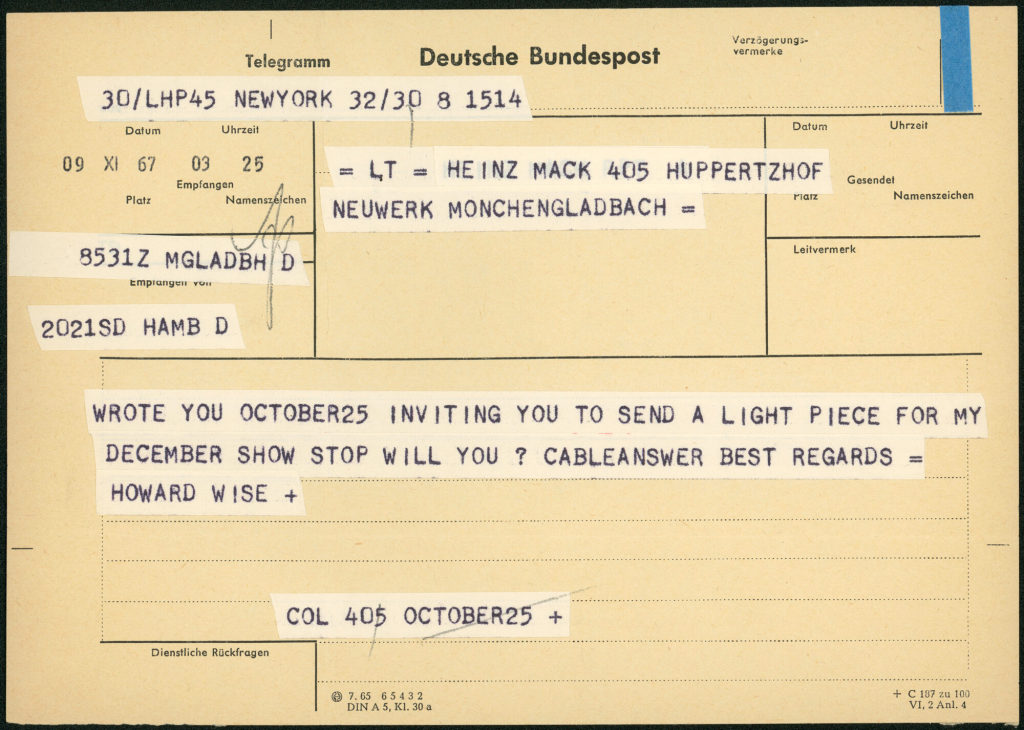 Telegramm
Deutsche Bundespost
Verzögerungs-
vermerke
30/LHP45 NEWYORK 32/30 8 1514
Datum Uhrzeit
09 XI 67 03 25
Empfangen
Platz Namenszeichen
= LT = HEINZ MACK 405 HUPPERTZHOF
NEUWERK MONCHENGLADBACH =
Datum Uhrzeit
Gesendet
Platz Namenszeichen
Leitvermerk
8531Z MGLADBH D
Empfangen von
2021SD HAMB D
WROTE YOU OCTOBER25 INVITING YOU TO SEND A LIGHT PIECE FOR MY
DECEMBER SHOW STOP WILL YOU ? CABLEANSWER BEST REGARDS =
HOWARD WISE +
COL 405 OCTOBER25 +
Dienstliche Rückfragen
7.65 6 5 4 3 2
DIN A 5, Kl. 30 a
+ C 187 zu 100
VI, 2 Anl. 4